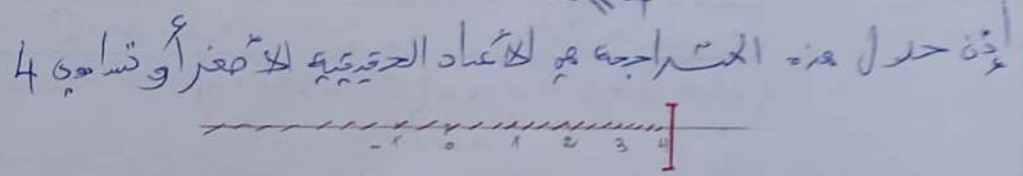 إذن حلول هذه المتراجحة هي الأعداد الحقيقية الأصغر أو تساوي 4
-1 0 1 2 3 4